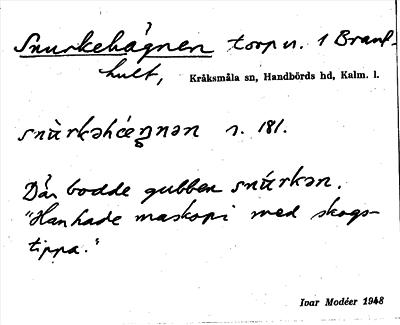 Snurkehagnen torpn. 1 Brant-
hult, Kråksmåla sn, Handbörds hd, Kalm. l.
snùrkəhæŋnən n. 181.
Där bodde gubben snúrkən.
"Han hade maskopi med skogs-
tippa."
Ivar Modéer 1948